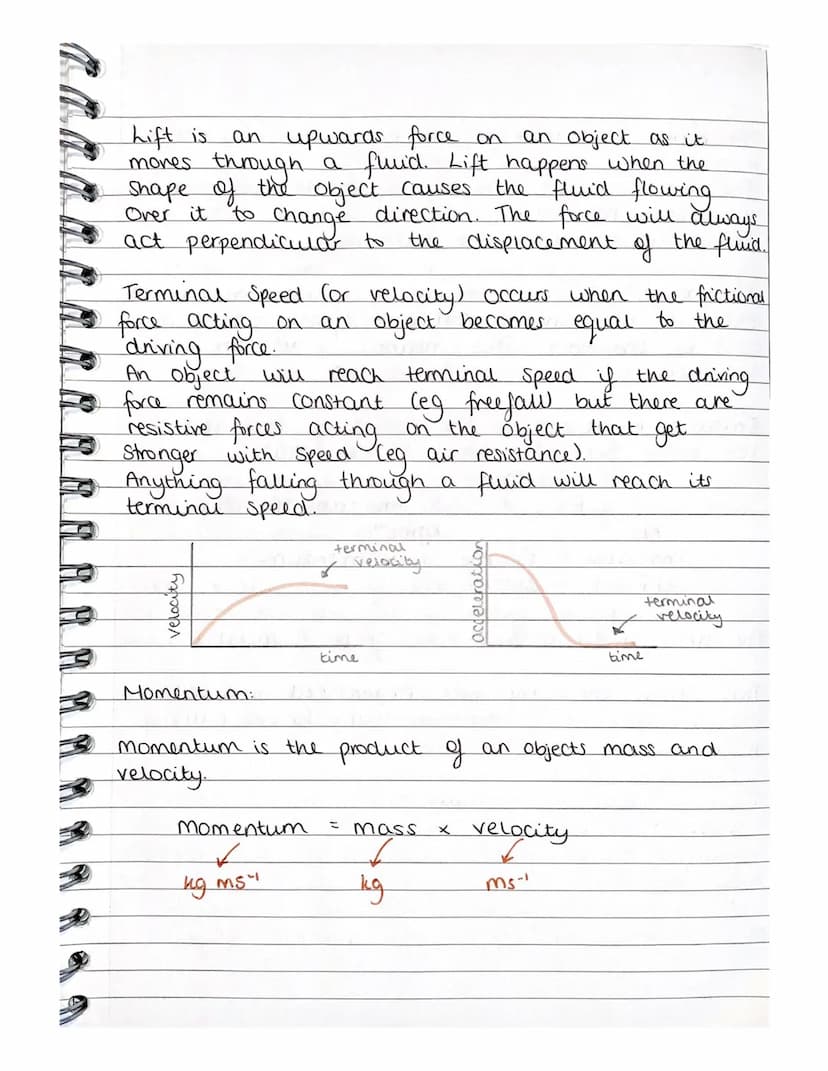 Lift is an upwards force on an object as it
moves through a fluid. Lift happens when the
shape of the object causes the fluid flowing
over it to change direction. The force will always
act perpendicular to the displacement of the fluid.
Terminal speed (or velocity) occurs when the frictional
force acting on an object becomes equal to the
driving force.
An object will reach terminal speed if the driving
force remains constant (eg freefall) but there are
resistive forces acting on the object that get
stronger with speed (eg air resistance).
Anything falling through a fluid will reach its
terminal speed.
velocity
terminal
velocity
time
acceleration
terminal
velocity
time
Momentum:
momentum is the product of an objects mass and
velocity.
momentum = mass x velocity
kg ms⁻¹ kg ms⁻¹